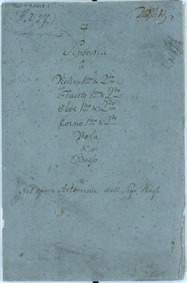 Sinfonia
à
Violino 1mo & 2do
Flauto 1mo & 2do
Oboe 1mo & 2do
Corno 1mo & 2do
Viola
e
Basso
Nel opera Artemisia dell Sigr. Hasse